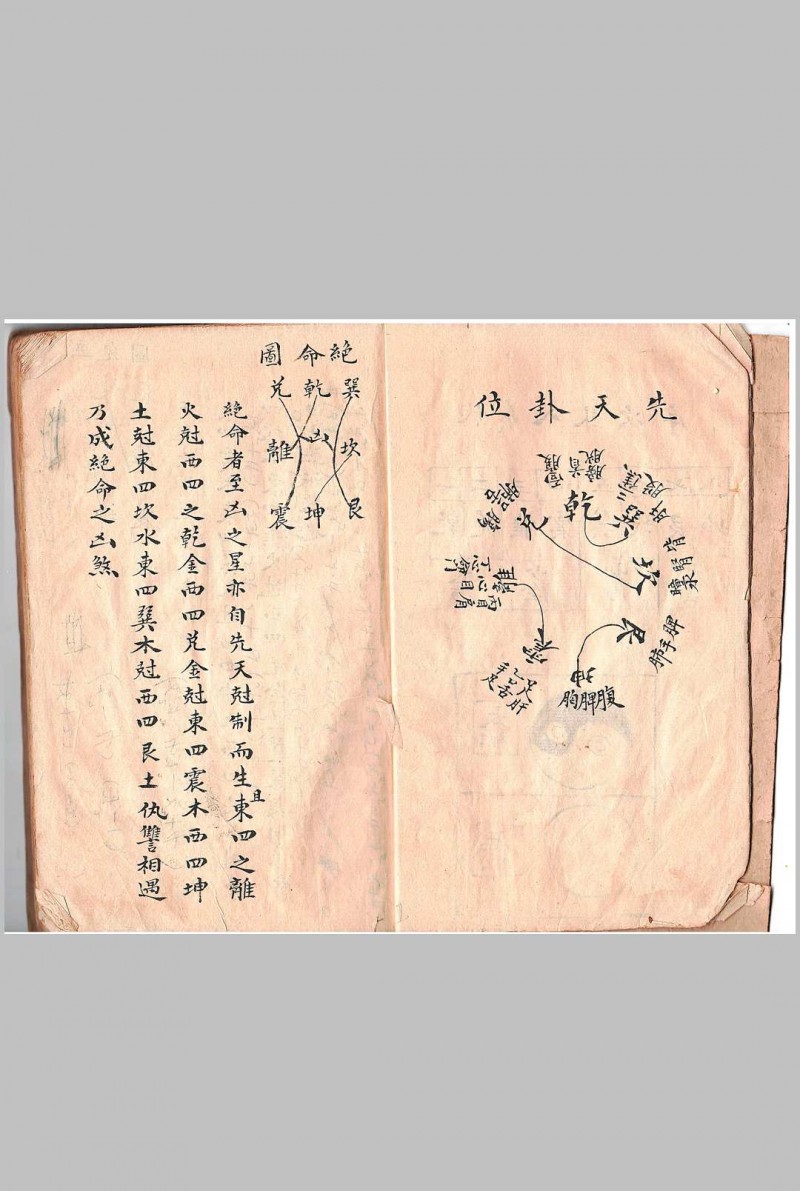 先天卦位
乾
兌
巽
坎
離
艮
震
坤
胸脾腹
肺手脾
絕命圖
巽乾兌
坎凶離
艮坤震
絕命者至凶之星亦自先天尅制而生且東四之離
火尅西四之乾金西四兌金尅東四震木西四坤
土尅東四坎水東四巽木尅西四艮土仇讐相遇
乃成絕命之凶煞